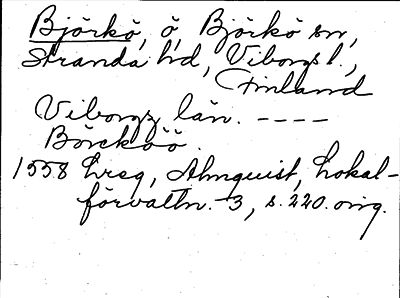 Björkö, ö, Björkö sn,
Stranda hd, Viborgs l.,
Finland
Viborgz län. ----
Börcköö.
1558 Lreg, Almquist, Lokal-
förvaltn. 3, s. 220. orig.